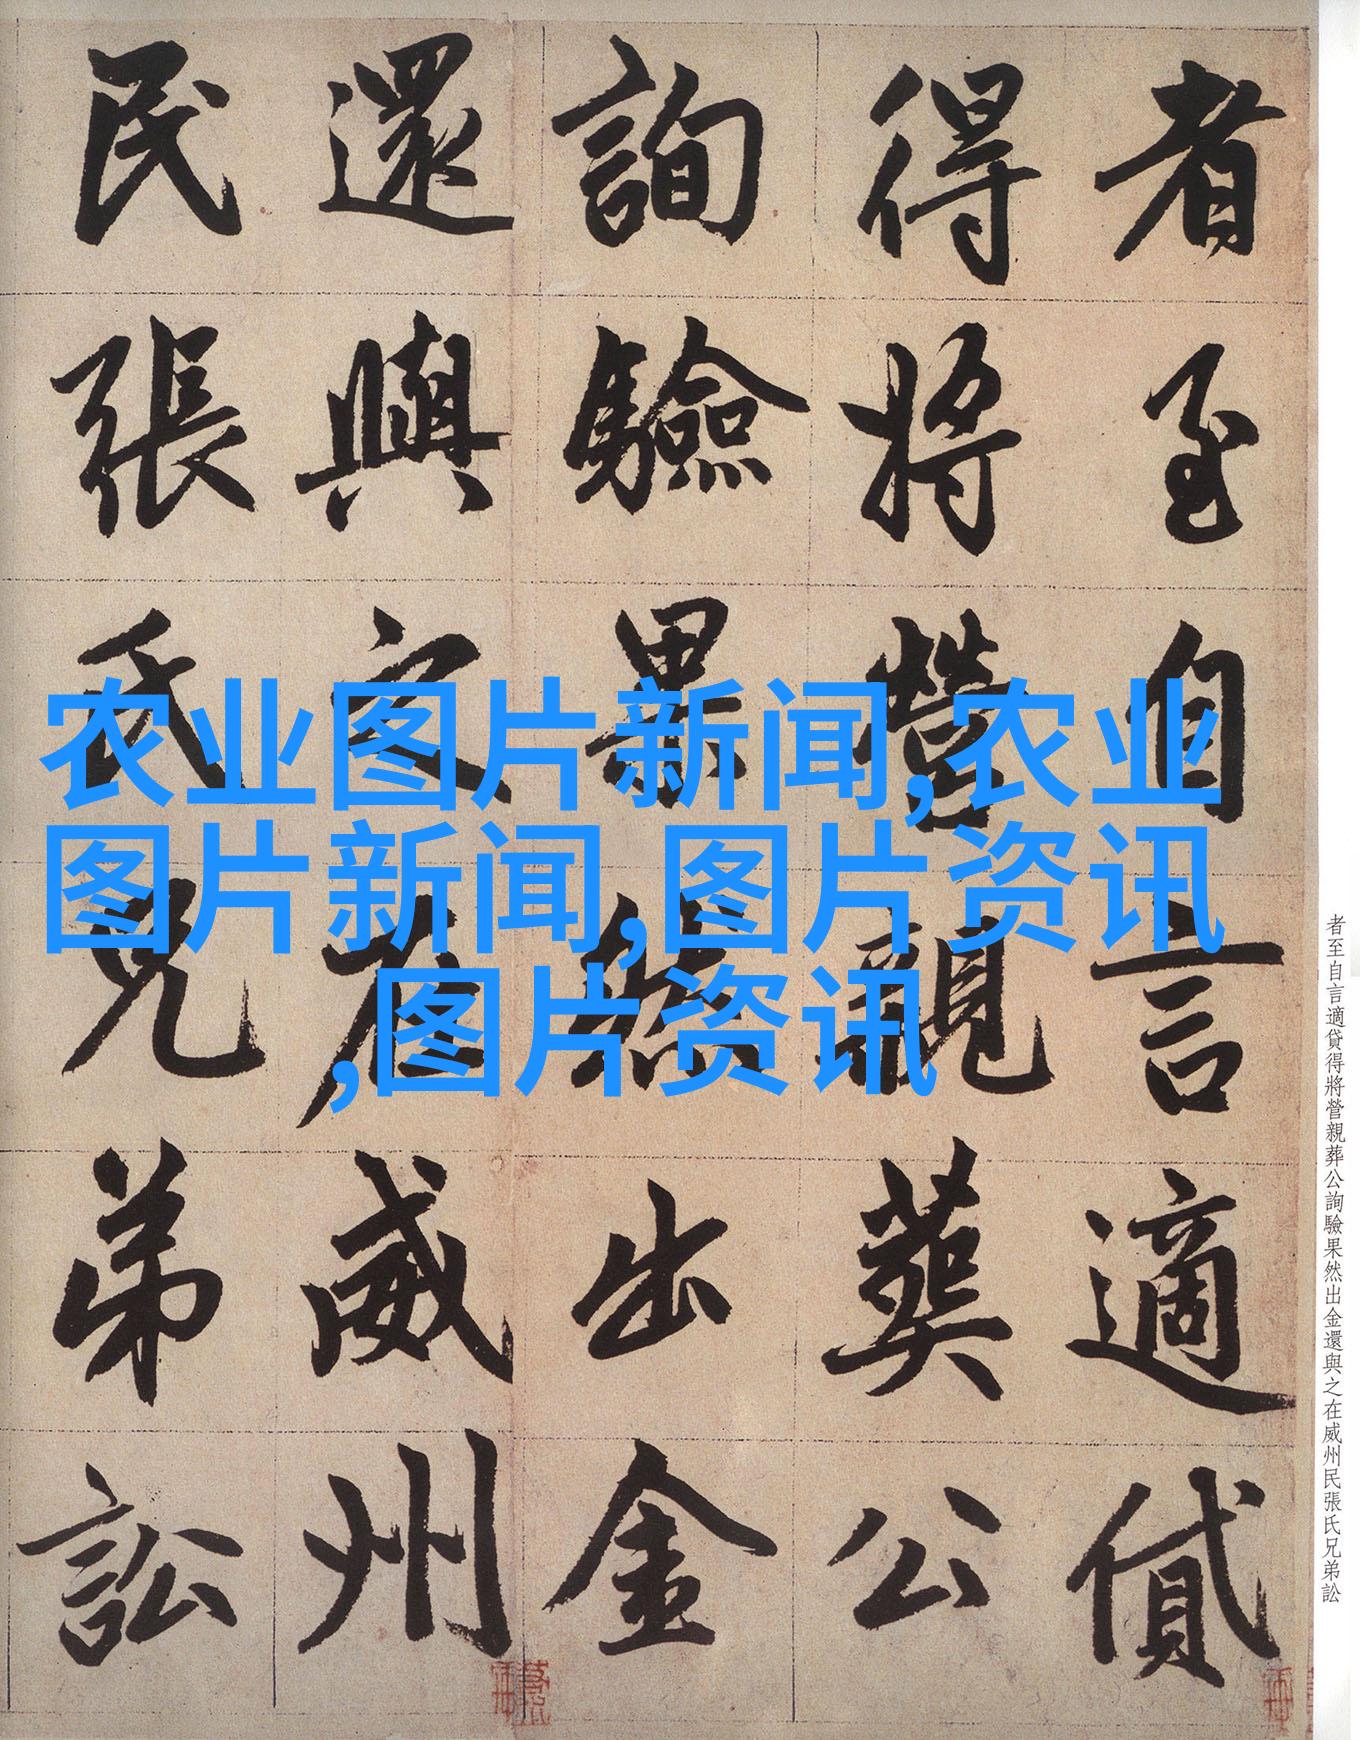 者至自言適貸
得將營親葬公
詢驗果然出金
還與之在威州
民張氏兄弟訟
农业图片新闻,农业
图片新闻,图片资讯
,图片资讯
者至自言適貸得將營親葬公詢驗果然出金還與之在威州民張氏兄弟訟